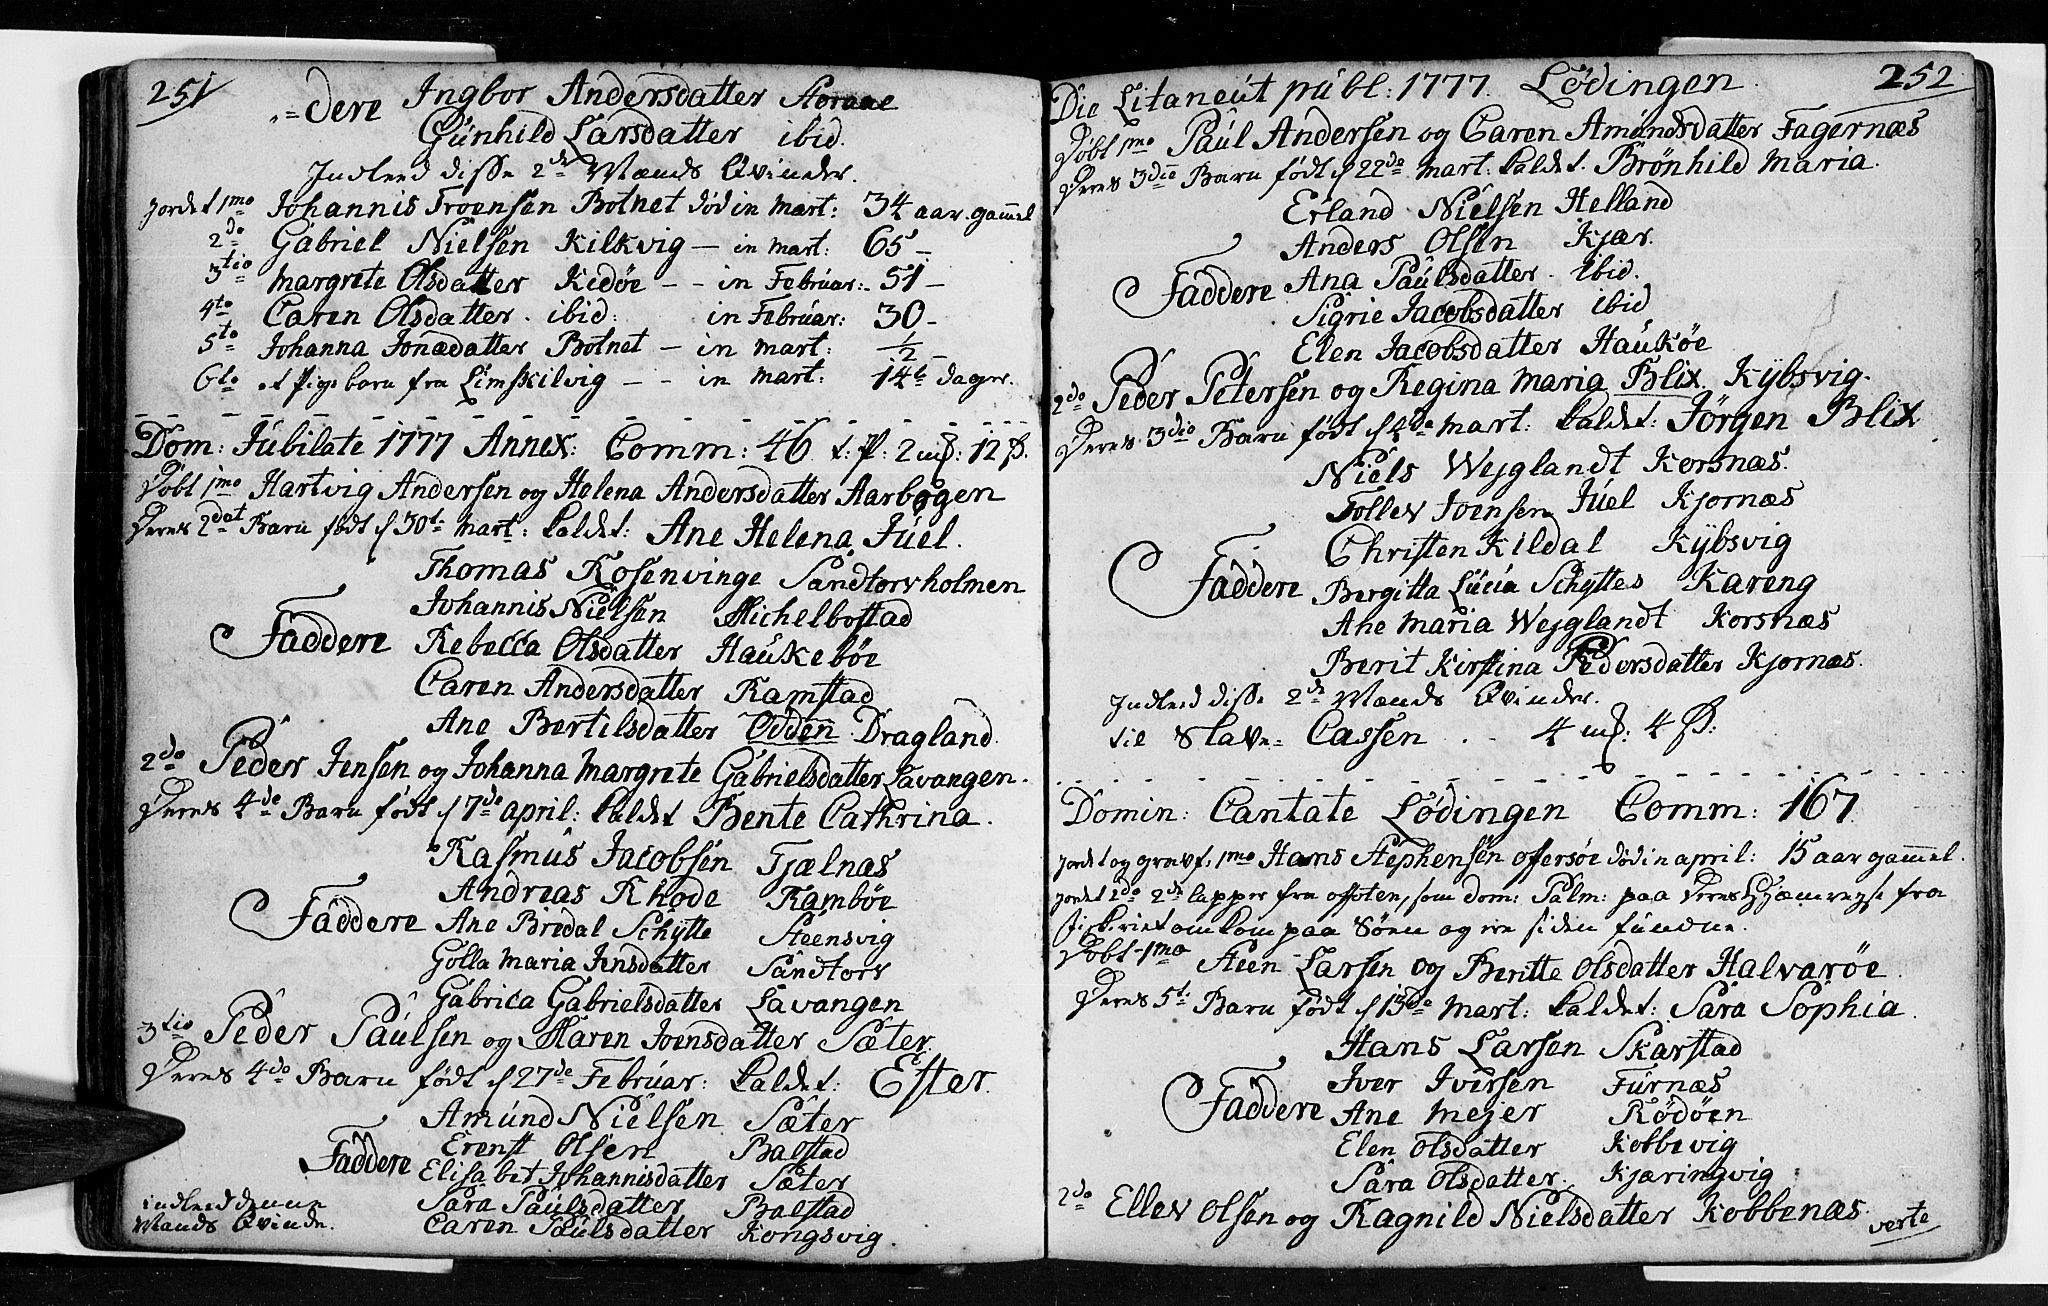 251
"=dere Ingbor Andersdatter Storaae
Gunhild Larsdatter ibid.
Indleed disse 2de Mænds Qvinder.
jordet 1mo Johannis Troensen Botnet død in Mart: 34 aar gamel
2do Gabriel Nielsen Kilkvig — in Mart: 65 —
3tio Margrete Olsdatter Kidøe - - in Februar: 51 —
4to Caren Olsdatter ibid: in Februar: 30 -
5to Johanna Jonædatter Botnet — in Mart: 1/2 —
6to et Pigebarn fra Limskilvig — - in Mart: 14t dager.
Dom: Jubilate 1777 Annex: Comm: 46 t: 2 m: 12 ß.
Døbt 1mo Hartvig Andersen og Helena Andersdatter Aarbogen
Deres 2det Barn født d 30t Mart: kaldet: Ane Helena Juel.
Thomas Rosenvinge Sandtorvholmen
Johannis Nielsen Michelbostad
Faddere Rebecca Olsdatter Haukebøe
Caren Andersdatter Ramstad
Ane Bertilsdatter Odden Dragland
2do Peder Jensen og Johanna Margrete Gabrielsdatter Lavangen.
Deres 4de Barn født d 7de april: kaldet Bente Cathrina.
Rasmus Jacobsen Tjælnæs
Andreas Rhode Rambøe
Faddere Ane Bredal Schytte Steensvig
Golla Maria Jensdatter Sandtorv
Gabrica Gabrielsdatter Lavangen
3tio Peder Paulsen og Maren Joensdatter Sæter.
Deres 4de Barn født d 27de Februar: kaldet: Ester.
Amund Nielsen Sæter
Erenst Olsen Balstad
Faddere Elisabet Johannisdatter Sæter
indleed denne Sara Paulsdatter Balstad
Mands Qvinde. Caren Paulsdatter Kongsvig.
252
Die Litaneut publ: 1777. Lödingen.
Døbt 1mo Paul Andersen og Caren Amundsdatter Fagernæs
Deres 3die Barn født d 22de Mart: kaldet. Brönhild Maria.
Erland Nielsen Helland
Anders Olsen Kjær.
Faddere Ana Paulsdatter. ibid.
Sigrie Jacobsdatter ibid
Elen Jacobsdatter Haukøe
2do Peder Petersen og Regina Maria Blix Kybsvig.
Deres 3die Barn født d 2de Mart: kaldet: Jörgen Blix
Niels Wejglandt Korsnæs.
Tollev Joensen Juel Kjornæs
Christen Kildal Kybsvig
Faddere Bergitta Lucia Schyttes Kareng
Ane Maria Wejglandt Korsnæs
Berit Kirstina Pedersdatter Kjornæs.
Indleed disse 2de Mænds Qvinder.
til Slave= Cassen . . 4 m: 4 ß:
Domin: Cantate Lödingen Comm: 167
jordet og gravf: 1mo Hans Stephensen Offersøe død in april: 15 aar gammel.
jordet 2do 2de lapper fra Offoten, som dom: Palm: paa deres Hjæmreyse fra
fiskeriet omkom paa Søen og ere siden fundne.
Døbt 1mo Steen Larsen og Beritte Olsdatter Halvarøe.
Deres 5t Barn født d 13de Mart: kaldet: Sara Sophia.
Hans Larsen Skarstad
Iver Iversen Furnæs
Faddere Ane Mejer Rödöen
Elen Olsdatter Kobbevig
Sara Olsdatter. Kjæringvig
2do Ellev Olsen og Ragnild Nielsdatter Kobbenæs.
verte